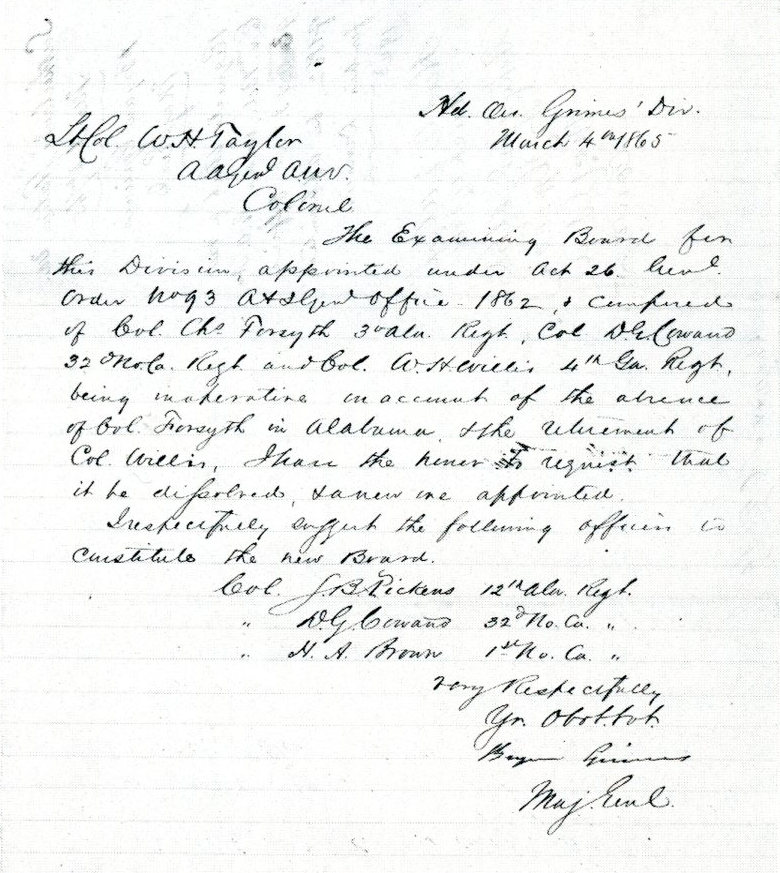 Hd. Qrs. Grimes' Div.
March 4th 1865
Lt. Col. W. H. Taylor
A A Genl A.N.V.
Colonel
The Examining Board for
this Division, appointed under Act 26. Genl.
Order No 93 A & I Genl Office 1862, & composed
of Col. Chs Forsyth 3d Ala. Regt, Col D. G. Cowand
32d No. Ca. Regt. and Col. W. H. Willis 4th Ga. Regt,
being inoperative on account of the absence
of Col. Forsyth in Alabama, & the retirement of
Col. Willis, I have the honor to request that
it be dissolved, & a new one appointed.
I respectfully suggest the following officers to
constitute the new Board.
Col. S. B. Pickens 12th Ala. Regt.
" D. G. Cowand 32d No. Ca. "
" H. A. Brown 1st No. Ca. "
Very Respectfully
Yr. Obt. Svt.
Bryan Grimes
Maj. Genl.